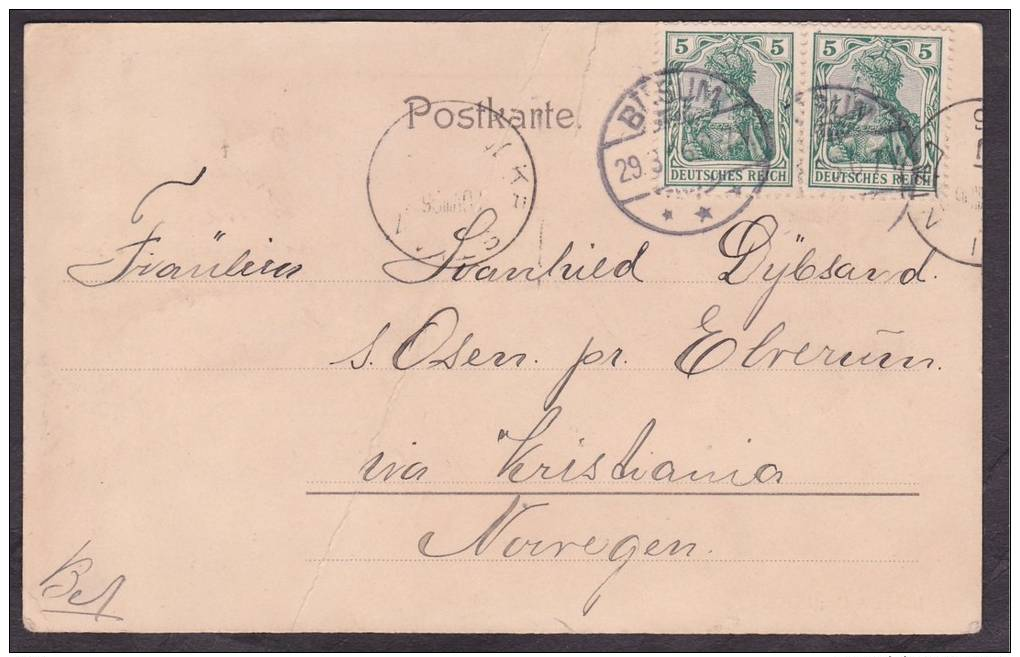 5 5 5 5
DEUTSCHES REICH DEUTSCHES REICH
Postkarte.
29.3
Fräulein Svanhild Dybsand.
s. Osen. pr. Elverŭm.
via Kristiania
Norwegen.